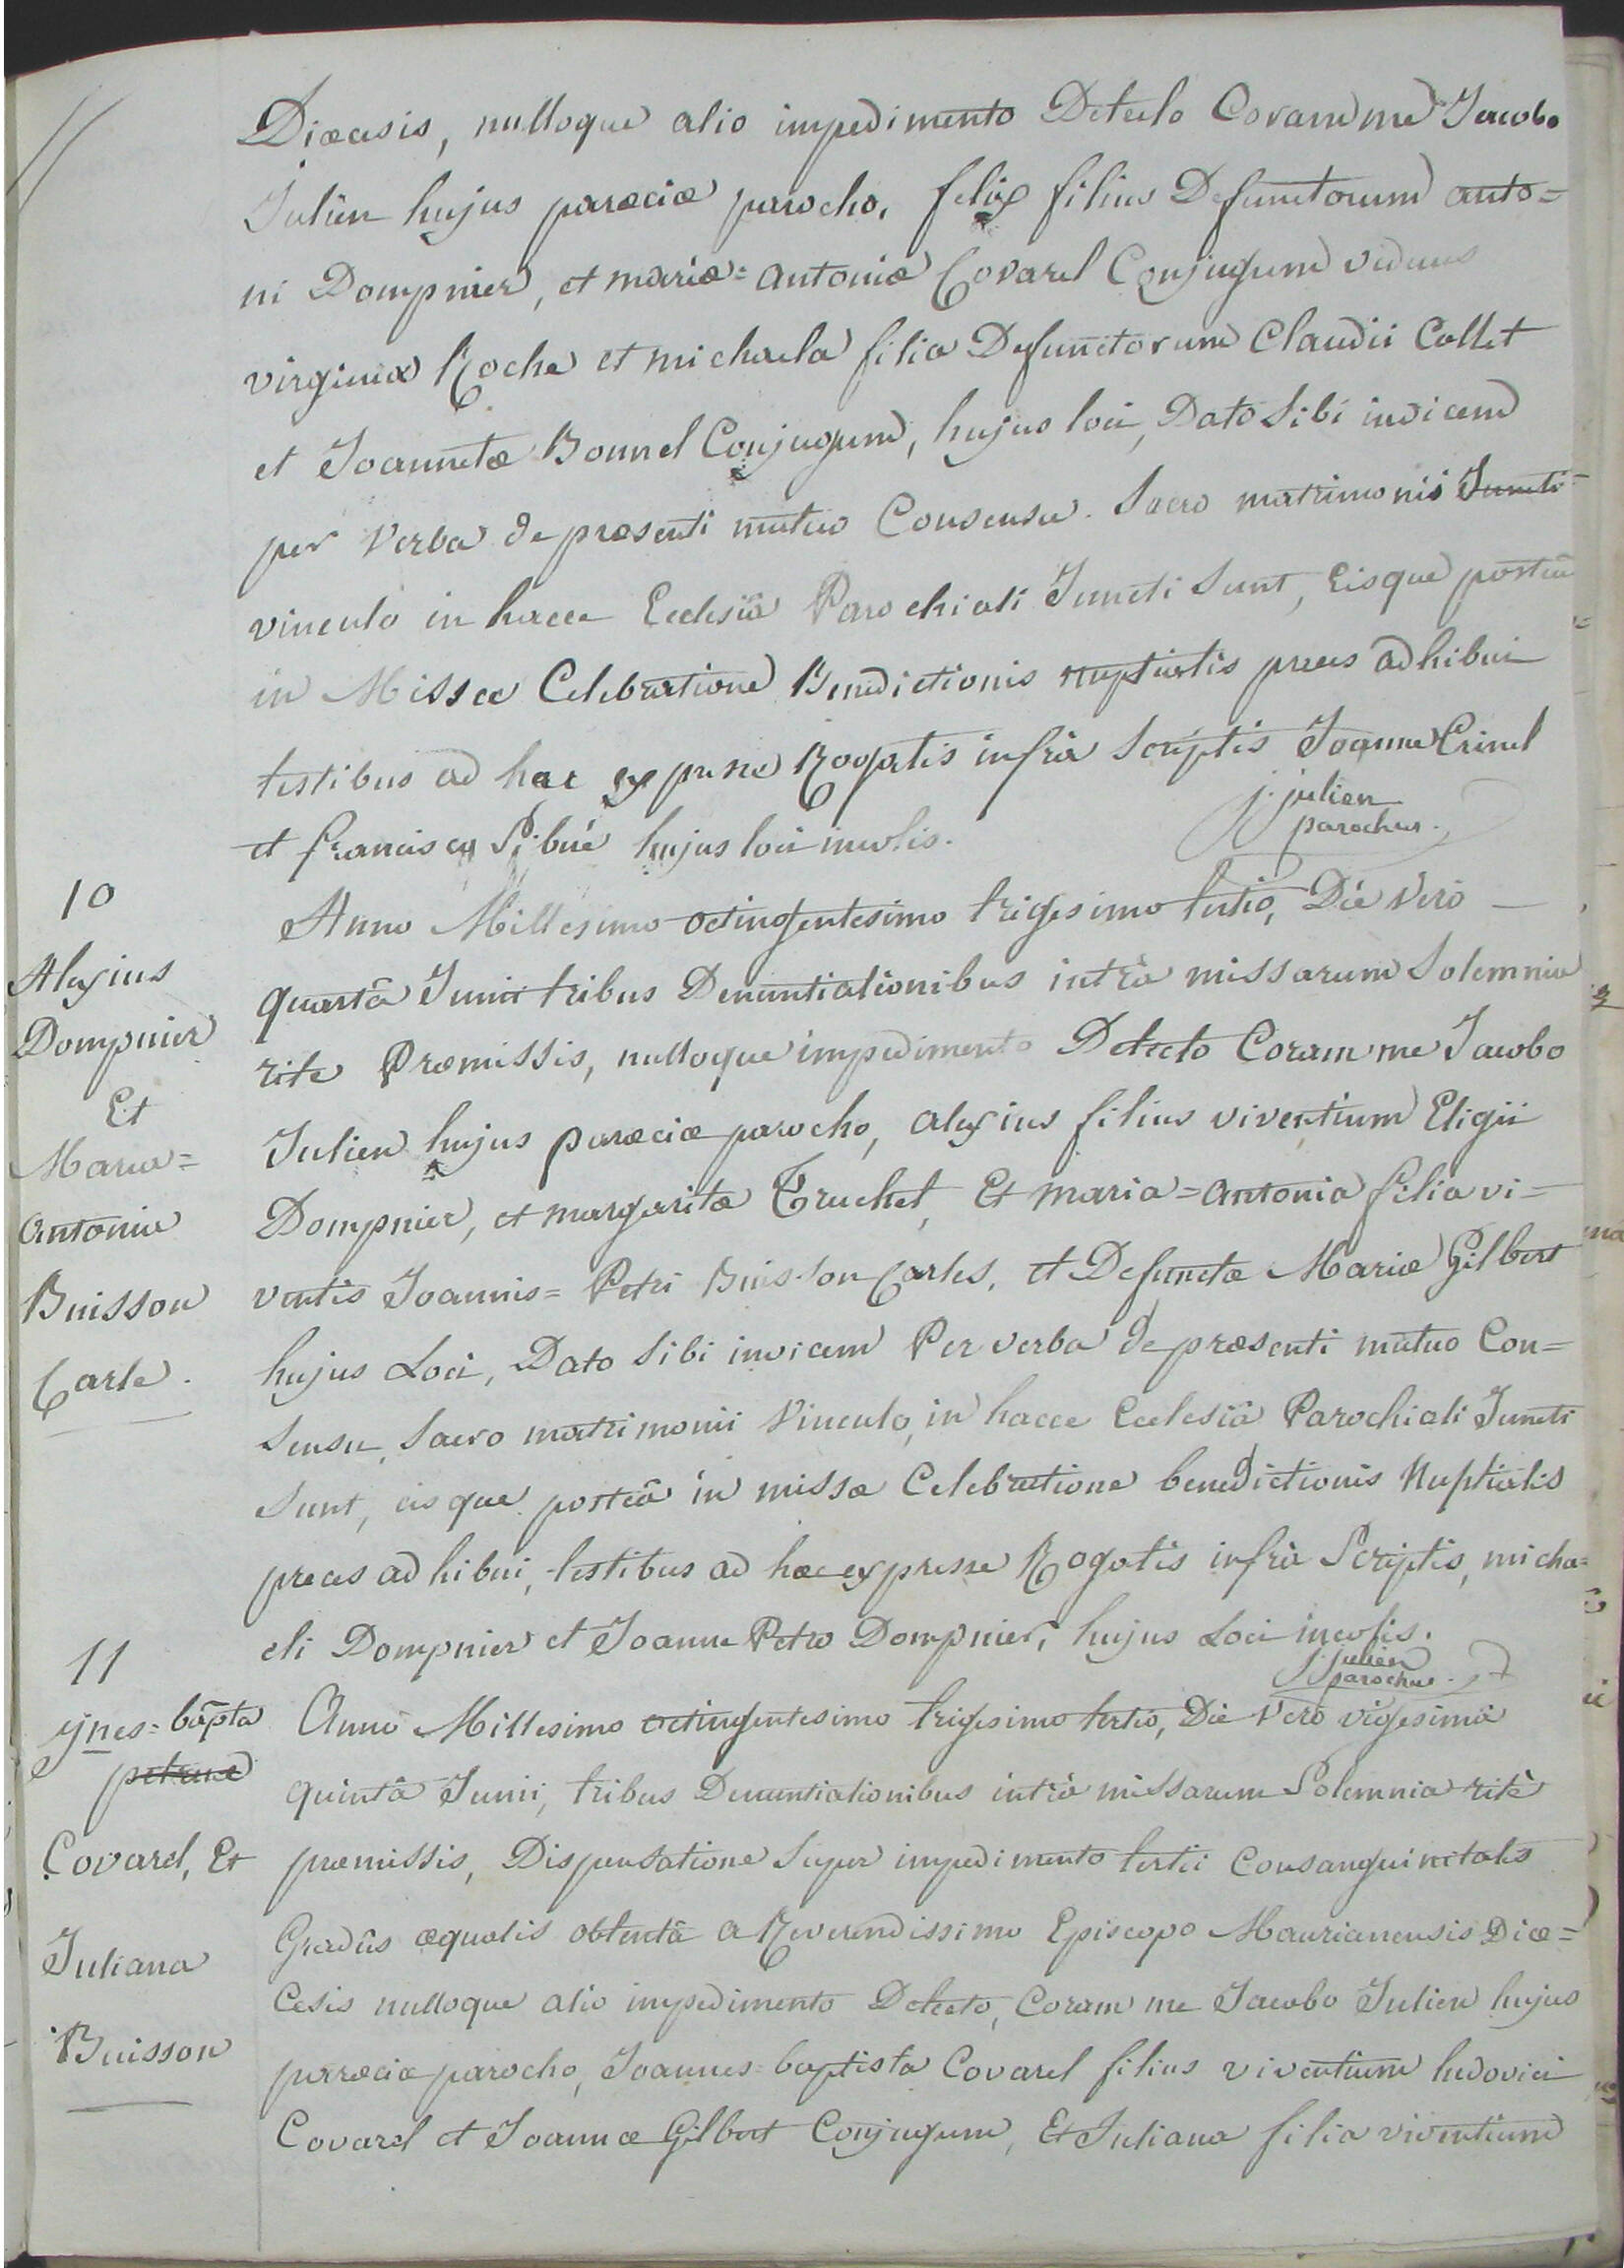 Diœcesis, nulloque alio impedimento Detecto Coram me Jacobo
Julien hujus parœciæ parocho, felix filius Defunctorum anto=
ni Dompnier, et mariæ=antoniæ Covarel Conjugum viduus
virginiæ Roche et michaela filia Defunctorum Claudii Collet
et Joannetæ Bonnel Conjugum, hujus loci, Dato Sibi invicem
per verba de præsenti mutuo Consensu. Sacro matrimonii Juncti
vinculo in hacce Ecclesiâ Parochiali Juncti Sunt, Eisque posteà
in Missæ Celebratione Benedictionis nuptialis preces adhibui
testibus ad hæc expresse Rogatis infrà Scriptis Joanne Crinel
et francisco Sibué hujus loci incolis.
j. julien
parochus.
10
Alexius
Dompnier
Et
Maria=
antonia
Buisson
Carle.
Anno Millesimo octingentesimo trigesimo tertio, Die Verò
quartâ Junii tribus Denuntiationibus intrà missarum Solemnia
rite Præmissis, nulloque impedimento Detecto Coram me Jacobo
Julien hujus parœciæ parocho, alexius filius viventium Eligii
Dompnier, et margaritæ Truchet, Et maria=antonia filia vi=
ventis Joannis=Petri Buisson Carles, et Defunctæ Mariæ Gilbert
hujus Loci, Dato Sibi invicem Per verba de præsenti mutuo Con=
sensu, Sacro matrimonii Vinculo, in hacce Ecclesiâ Parochiali Juncti
Sunt, eisque posteà in missæ Celebratione benedictionis Nuptialis
preces adhibui, testibus ad hæc expresse Rogatis infrà Scriptis, micha=
eli Dompnier et Joanne Petro Dompnier, hujus Loci incolis.
j. julien
parochus.
11
jnes=bapta
petrus
Covarel, Et
Juliana
Buisson
Anno Millesimo octingentesimo trigesimo tertio, Die Vero vigesimâ
quintâ Junii, tribus Denuntiationibus intrà missarum Solemnia ritè
præmissis, Dispensatione Super impedimento tertii Consanguinitatis
Gradûs æqualis obtentâ a Reverendissimo Episcopo Maurianensis Diœ=
Cesis nulloque alio impedimento Detecto, Coram me Jacobo Julien hujus
parœciæ parocho, Joannes=baptista Covarel filius viventium ludovici
Covarel et Joannæ Gilbert Conjugum, Et Juliana filia viventium